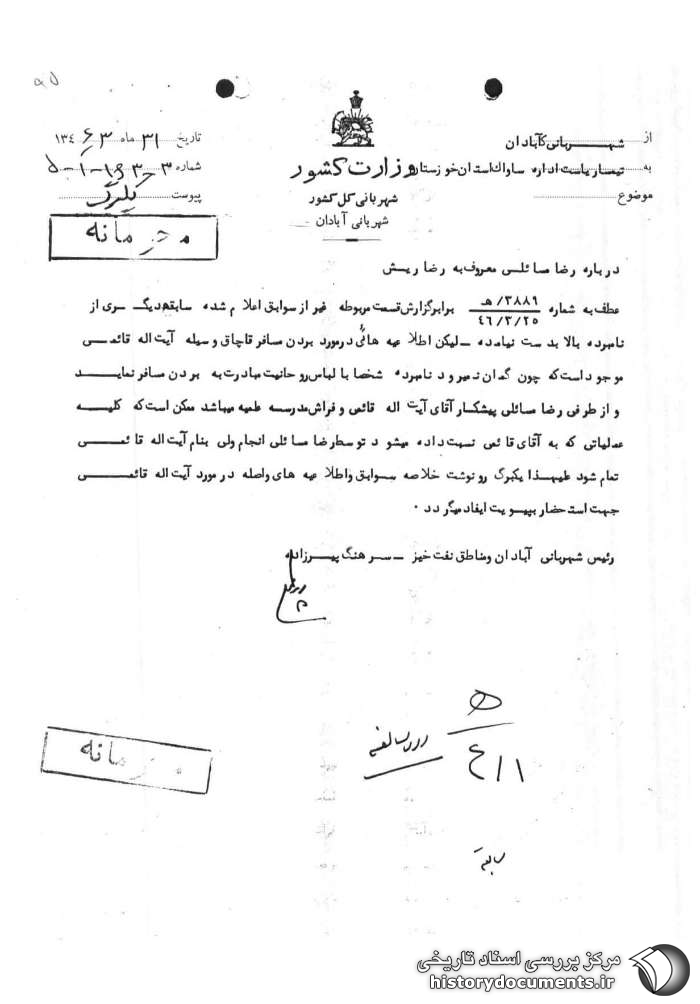 از شهربانی آبادان
به تیمسار ریاست اداره ساواک استان خوزستان
موضوع
وزارت کشور
شهربانی کل کشور
شهربانی آبادان
تاریخ ۳۱ ماه ۳ ۱۳۴۶
شماره
پیوست یکبرگ
محرمانه
درباره رضا مسائلی معروف به رضا ریش
عطف به شماره ۳۸۸۹/هـ ۴۶/۳/۲۵ برابر گزارش قسمت مربوطه غیر از سوابق اعلام شده سابقه دیگری از
نامبرده بالا بدست نیامده ـ لیکن اطلاعیه هائی در مورد بردن مسافر قاچاق وسیله آیت اله قائمی
موجود است که چون گمان نمیرود نامبرده شخصا با لباس روحانیت مبادرت به بردن مسافر نماید
و از طرفی رضا مسائلی پیشکار آقای آیت اله قائمی و فراش مدرسه علمیه میباشد ممکن است که کلیه
عملیاتی که به آقای قائمی نسبت داده میشود توسط رضا مسائلی انجام ولی بنام آیت اله قائمی
تمام شود علیهذا یکبرگ رونوشت خلاصه سوابق و اطلاعیه های واصله در مورد آیت اله قائمی
جهت استحضار بپیوست ایفاد میگردد ۰
رئیس شهربانی آبادان و مناطق نفت خیز ـ سرهنگ پیرزاده
محرمانه
مرکز بررسی اسناد تاریخی
historydocuments.ir